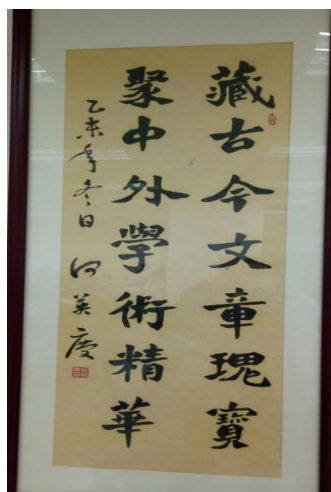 藏古今文章瑰寶
聚中外學術精華
乙未年冬日 何英慶